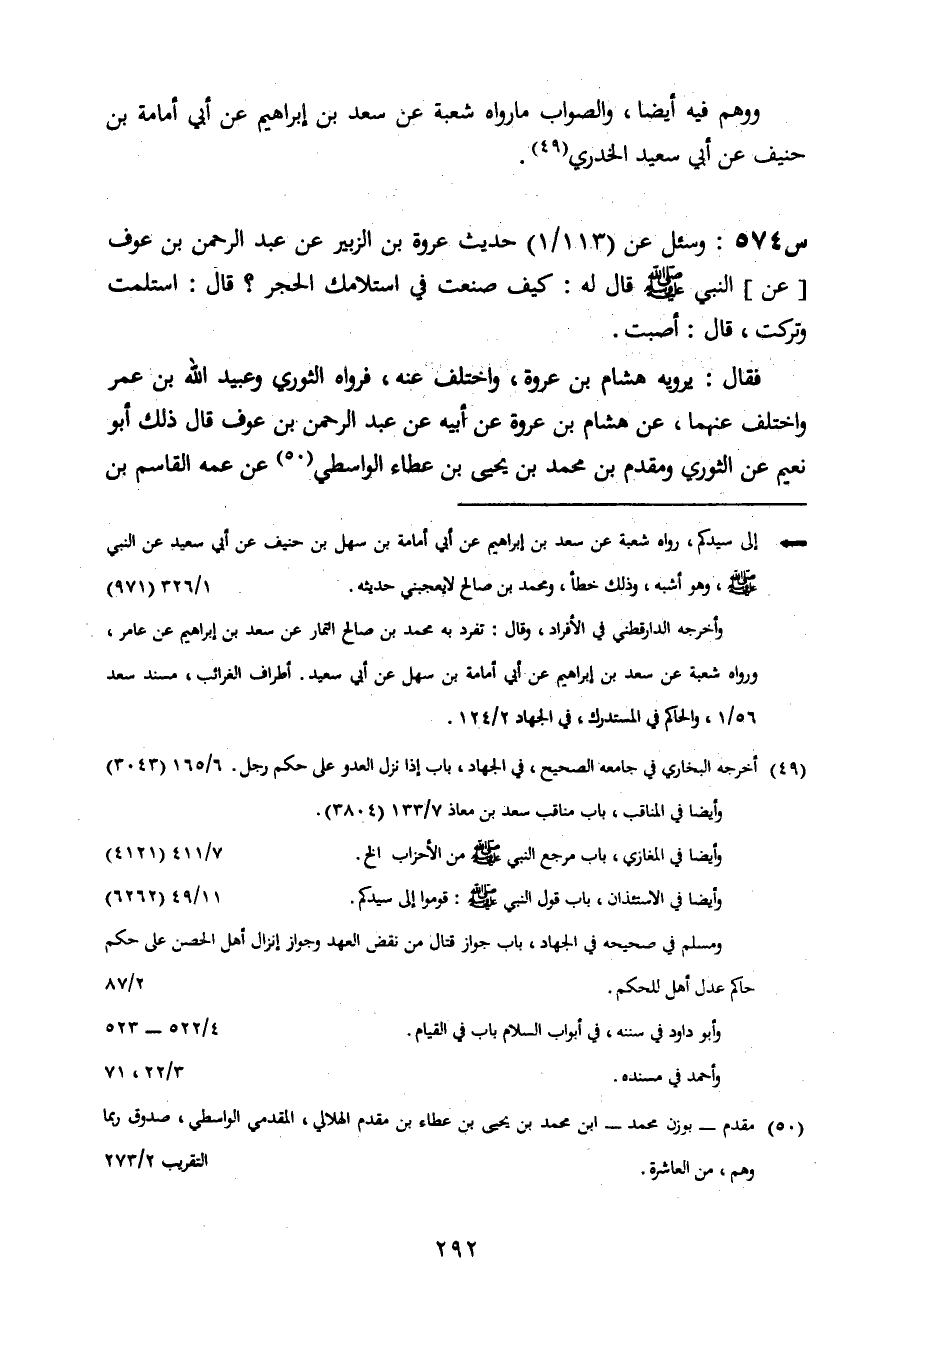 ووهم فيه أيضا ، والصواب مارواه شعبة عن سعد بن إبراهيم عن أبي أمامة بن
حنيف عن أبي سعيد الخدري(٤٩) .
س٥٧٤ : وسئل عن (١/١١٣) حديث عروة بن الزبير عن عبد الرحمن بن عوف
[ عن ] النبي ﷺ قال له : كيف صنعت في استلامك الحجر ؟ قال : استلمت
وتركت ، قال : أصبت .
فقال : يرويه هشام بن عروة ، واختلف عنه ، فرواه الثوري وعبيد الله بن عمر
واختلف عنهما ، عن هشام بن عروة عن أبيه عن عبد الرحمن بن عوف قال ذلك أبو
نعيم عن الثوري ومقدم بن محمد بن يحيى بن عطاء الواسطي(٥٠) عن عمه القاسم بن
← إلى سيدكم ، رواه شعبة عن سعد بن إبراهيم عن أبي أمامة بن سهل بن حنيف عن أبي سعيد عن النبي
ﷺ ، وهو أشبه ، وذلك خطأ ، ومحمد بن صالح لايعجبني حديثه . ٣٢٦/١ (٩٧١)
وأخرجه الدارقطني في الأفراد ، وقال : تفرد به محمد بن صالح التمار عن سعد بن إبراهيم عن عامر ،
ورواه شعبة عن سعد بن إبراهيم عن أبي أمامة بن سهل عن أبي سعيد . أطراف الغرائب ، مسند سعد
١/٥٦ ، والحاكم في المستدرك ، في الجهاد ١٢٤/٢ .
(٤٩) أخرجه البخاري في جامعه الصحيح ، في الجهاد ، باب إذا نزل العدو على حكم رجل . ١٦٥/٦ (٣٠٤٣)
وأيضا في المناقب ، باب مناقب سعد بن معاذ ١٣٣/٧ (٣٨٠٤) .
وأيضا في المغازي ، باب مرجع النبي ﷺ من الأحزاب الخ . ٤١١/٧ (٤١٢١)
وأيضا في الاستئذان ، باب قول النبي ﷺ : قوموا إلى سيدكم . ٤٩/١١ (٦٢٦٢)
ومسلم في صحيحه في الجهاد ، باب جواز قتال من نقض العهد وجواز إنزال أهل الحصن على حكم
حاكم عدل أهل للحكم . ٨٧/٢
وأبو داود في سننه ، في أبواب السلام باب في القيام . ٥٢٢/٤ — ٥٢٣
وأحمد في مسنده . ٢٢/٣ ، ٧١
(٥٠) مقدم — بوزن محمد — ابن محمد بن يحيى بن عطاء بن مقدم الهلالي ، المقدمي الواسطي ، صدوق ربما
وهم ، من العاشرة . التقريب ٢٧٣/٢
٢٩٢